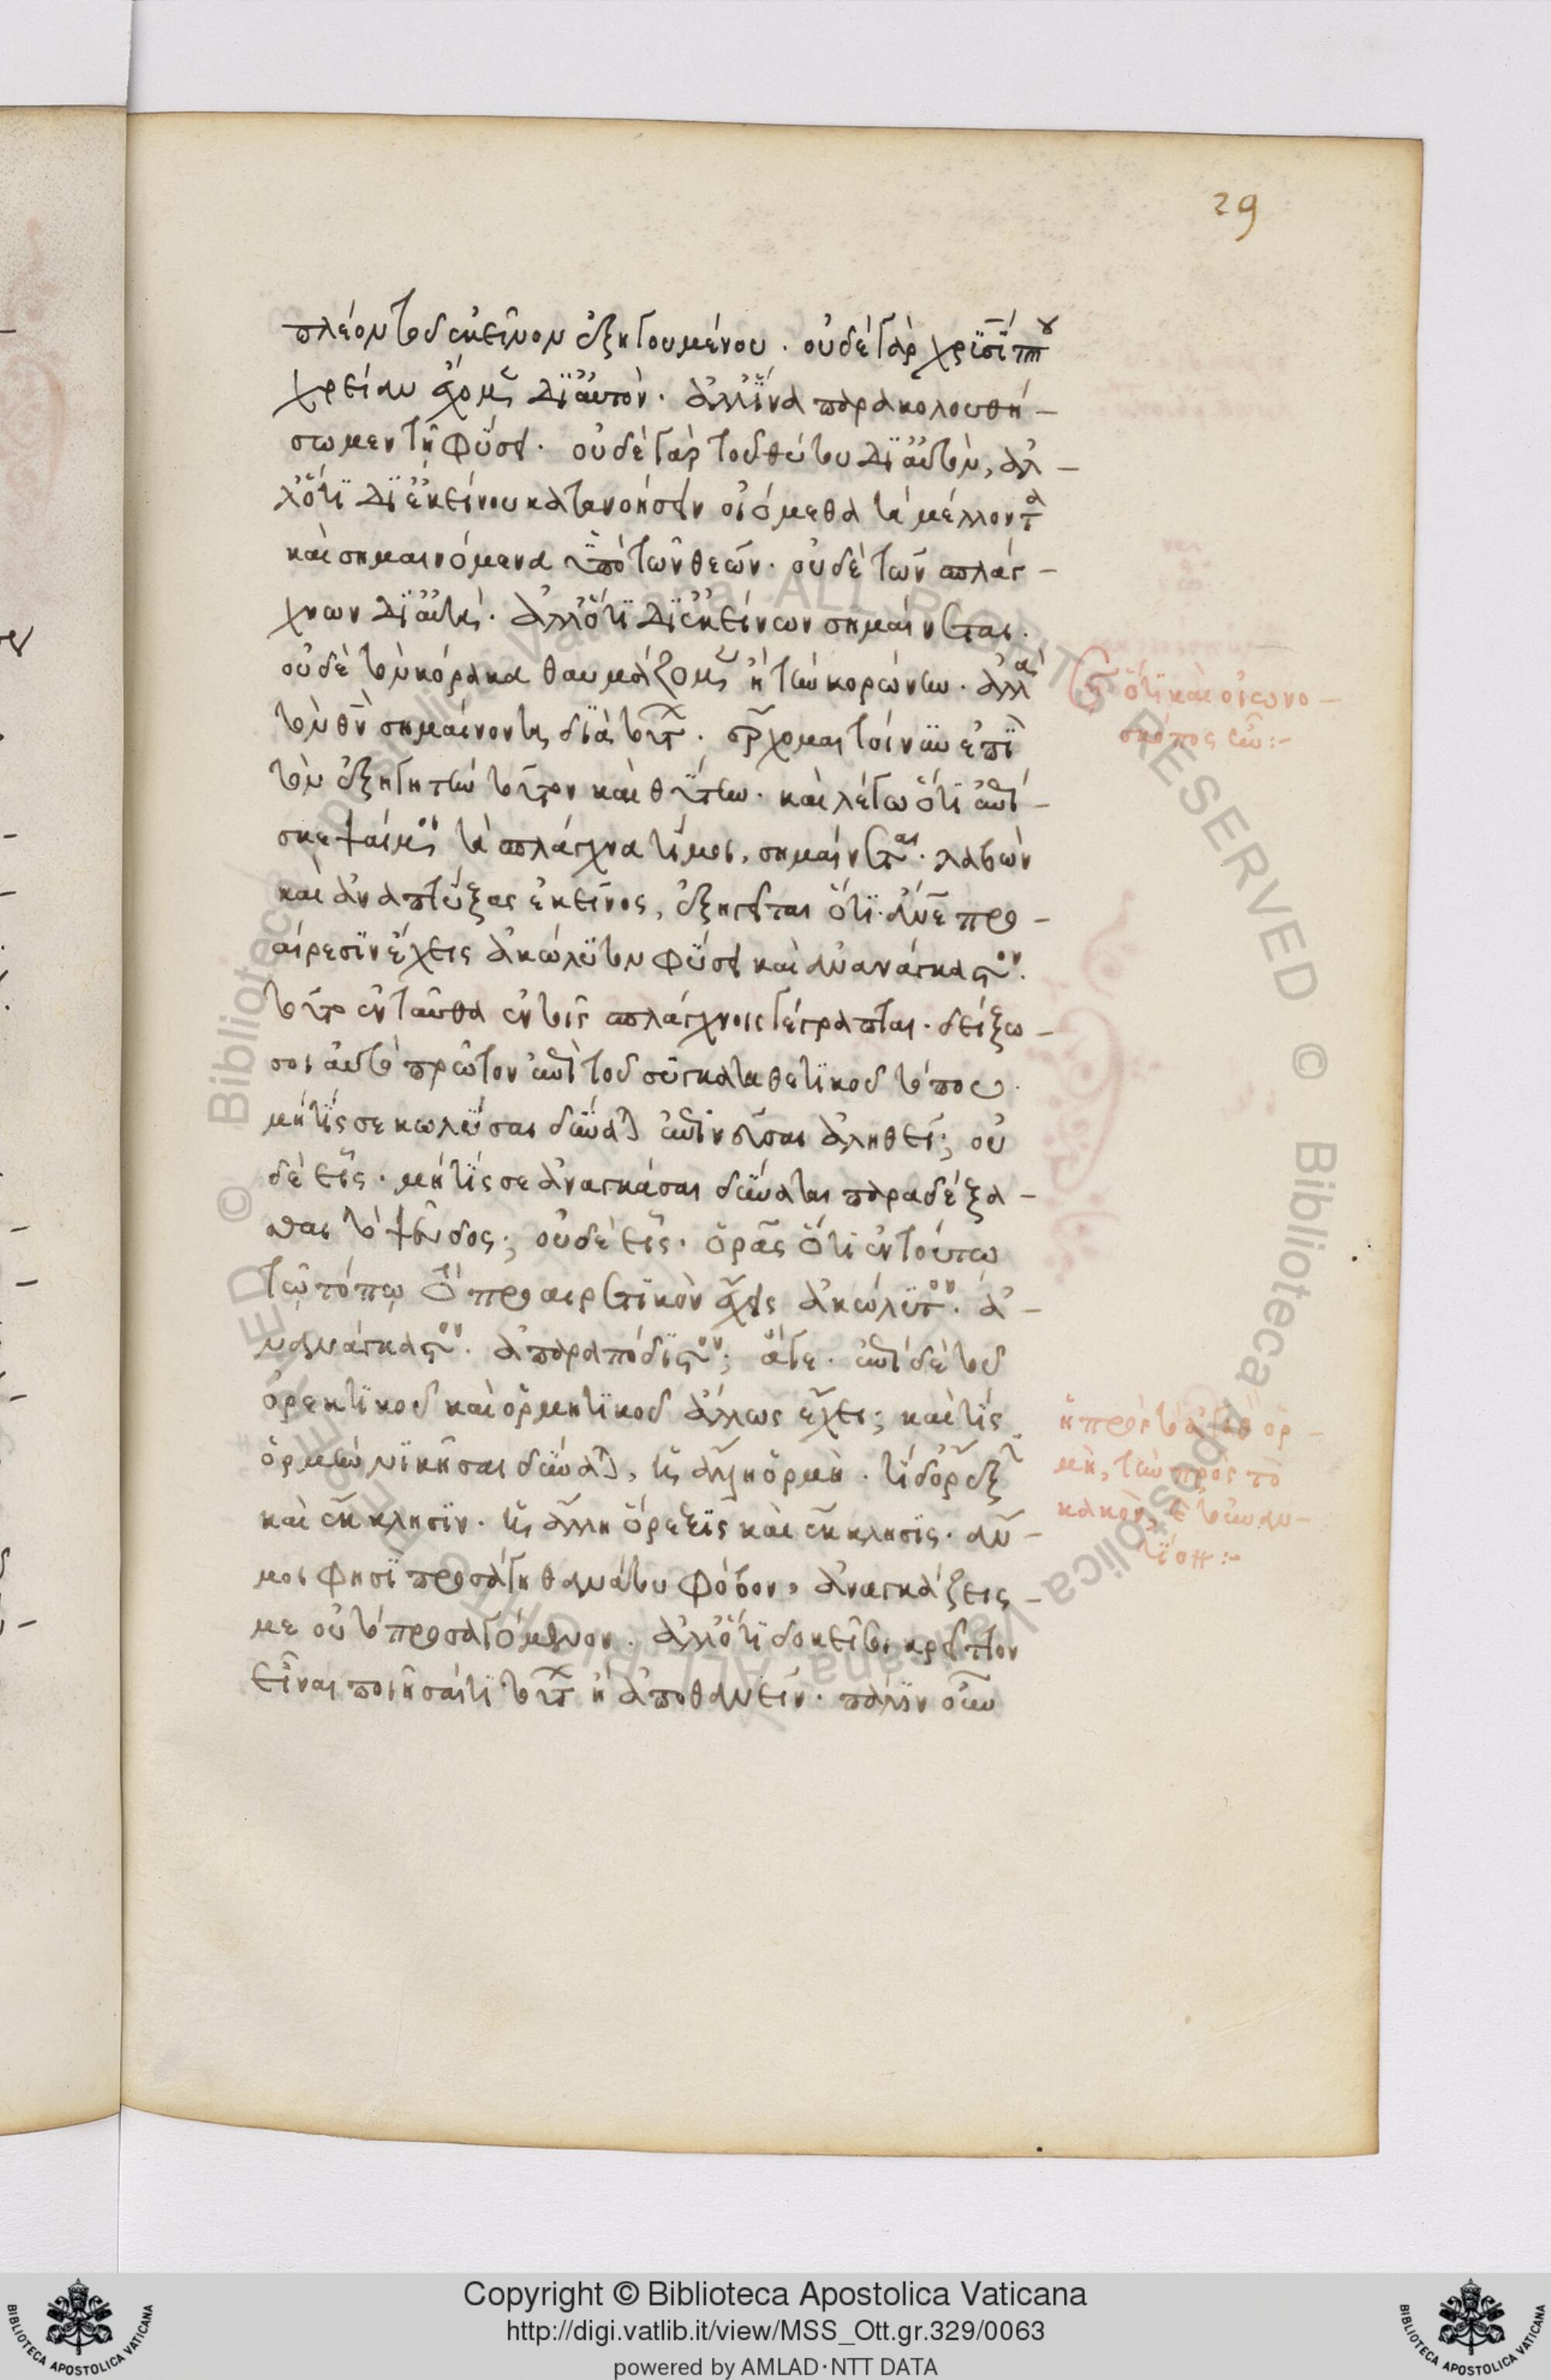 29
πλέον τοῦ ἐκεῖνον ἐξηγουμένου. οὐδὲ γὰρ χρϊσίππου
χρείαν ἔχομεν δϊ' αὐτὸν. ἀλλ' ἵνα παρακολουθή-
σωμεν τῇ φύσει. οὐδὲ γὰρ τοῦ θύτου δϊ' αὐτὸν, ἀλ-
λ' ὅτϊ δϊ' ἐκείνου κατανοήσειν οἰόμεθα τὰ μέλλοντα
καὶ σημαινόμενα ὑπὸ τῶν θεῶν. οὐδὲ τῶν σπλάγ-
χνων δϊ' αὐτά. ἀλλ' ὅτϊ δϊ' ἐκείνων σημαίνεται.
οὐδὲ τὸν κόρακα θαυμάζομεν ἢ τὴν κορώνην. ἀλλὰ
τὸν θν σημαίνοντα διὰ τούτων. ἔρχομαι τοίνυν ἐπὶ
τὸν ἐξηγητὴν τοῦτον καὶ θύτην. καὶ λέγω ὅτι ἐπί-
σκεψαί μοι τὰ σπλάγχνα τί μοι, σημαίνεται. λαβὼν
καὶ ἀναπτύξας ἐκεῖνος, ἐξηγεῖται ὅτϊ. ἄνε προ-
αίρεσϊν ἔχεις ἀκώλϋτον φύσει καὶ ἀνανάγκαστον.
τοῦτο ἐνταῦθα ἐν τοῖς σπλάγχνοις γέγραπται. δείξω
σοι αὐτὸ πρῶτον ἐπὶ τοῦ συγκαταθετϊκοῦ τόπου.
μή τίς σε κωλῦσαι δύναται ἐπινεῦσαι ἀληθεῖ; οὐ
δὲ εἷς. μή τίς σε ἀναγκάσαι δύναται παραδέξα-
σθαι τὸ ψεῦδος; οὐδὲ εἷς. ὁρᾶς ὅτι ἐν τούτῳ
τῷ τόπῳ τὸ προαιρετϊκὸν ἔχεις ἀκώλϋτον. ἀ-
νανάγκαστον. ἀπαραπόδϊστον; ἄγε. ἐπὶ δὲ τοῦ
ὀρεκτϊκοῦ καὶ ὁρμητϊκοῦ ἄλλως ἔχει; καὶ τίς
ὁρμὴν νϊκῆσαι δύναται, ἢ ἄλλη ὁρμὴ. τίς δ' ὄρεξιν
καὶ ἔκκλησϊν. ἢ ἄλλη ὄρεξϊς καὶ ἔκκλησϊς. ἄν
μοι φησϊ προσάγη θανάτου φόβον, ἀναγκάζεις
με οὐ τὸ προσαγόμενον. ἀλλ' ὅτϊ δοκεῖ σοι κρεῖττον
εἶναι ποιῆσαί τϊ τούτων ἢ ἀποθανεῖν. πάλϊν οὖν
ὅτϊ καὶ οἰωνο-
σκόπος ἦν:-
ἡ πρὸς τὸ ἀγαθὸν ὁρ-
μὴ, τὴν πρὸς τὸ
κακὸν,
Copyright © Biblioteca Apostolica Vaticana
http://digi.vatlib.it/view/MSS_Ott.gr.329/0063
powered by AMLAD·NTT DATA